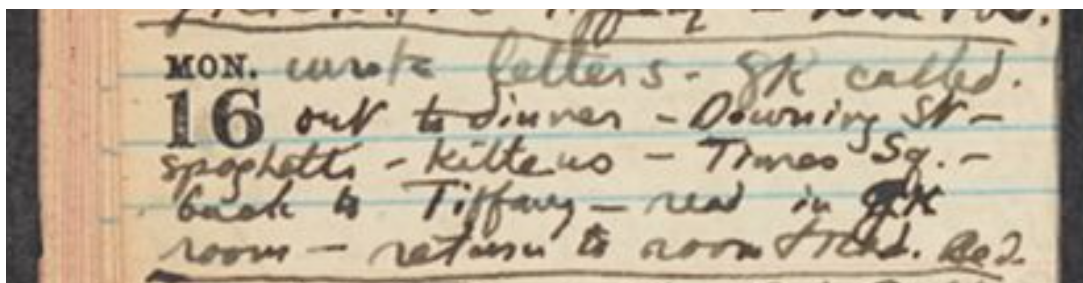 Tiffany -
MON. wrote letters - GK called.
16 out to dinner - Downing St -
spaghetti - kittens - Times Sq. -
back to Tiffany - read in GK
room - return to room & read. Bed.